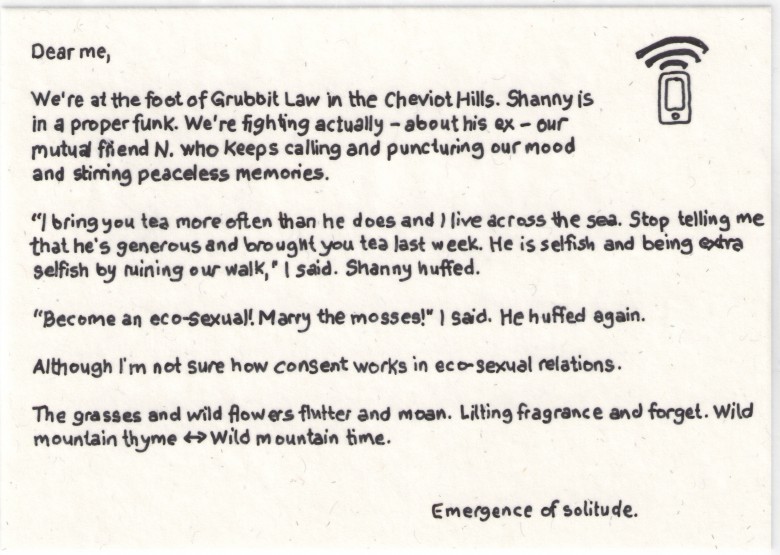 Dear me,
We're at the foot of Grubbit Law in the Cheviot Hills. Shanny is
in a proper funk. We're fighting actually – about his ex – our
mutual friend N. who keeps calling and puncturing our mood
and stirring peaceless memories.
"I bring you tea more often than he does and I live across the sea. Stop telling me
that he's generous and brought you tea last week. He is selfish and being extra
selfish by ruining our walk," I said. Shanny huffed.
"Become an eco-sexual! Marry the mosses!" I said. He huffed again.
Although I'm not sure how consent works in eco-sexual relations.
The grasses and wild flowers flutter and moan. Lilting fragrance and forget. Wild
mountain thyme ↔ Wild mountain time.
Emergence of solitude.